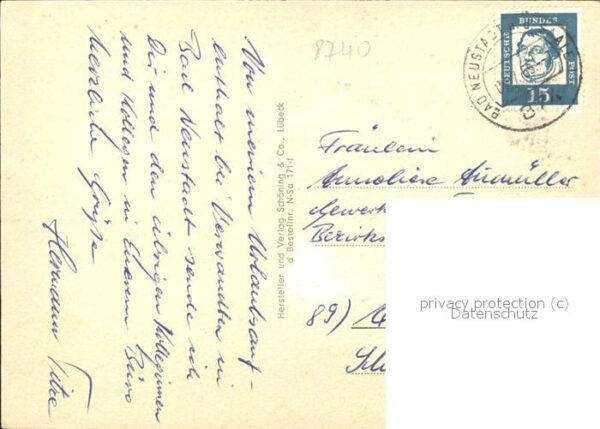 8740
Von meinem Urlaubsauf-
enthalt bei Verwandten in
Bad Neustadt sende ich
Dir und den übrigen Kolleginnen
und Kollegen in Eurem Büro
herzliche Grüße
Hermann
Hersteller und Verlag Schöning & Co., Lübeck
d Bestellnr. N-Sa 171-f
BAD NEUSTADT
DEUTSCHE
BUNDES
POST
15
Fräulein
Anneliese Aumüller
Gewerk
Bezirks
89)
privacy protection (c)
Datenschutz